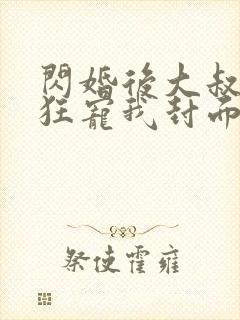 閃婚後大叔
狂寵我封面
祭使霍雍